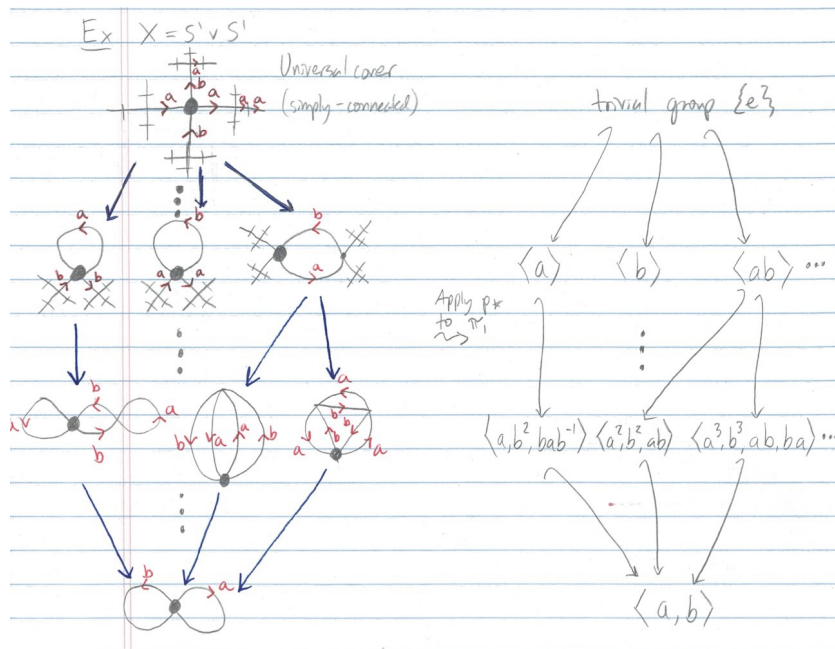 Ex X = S¹ ∨ S¹
Universal cover
(simply-connected)
trivial group {e}
a
b
a a a a
b
a b b
b b a a a
⟨a⟩ ⟨b⟩ ⟨ab⟩ ...
Apply p*
to π₁
b a
a a b a a b b b b
b a a
⟨a, b², bab⁻¹⟩ ⟨a², b², ab⟩ ⟨a³, b³, ab, ba⟩ ...
b a
⟨a, b⟩